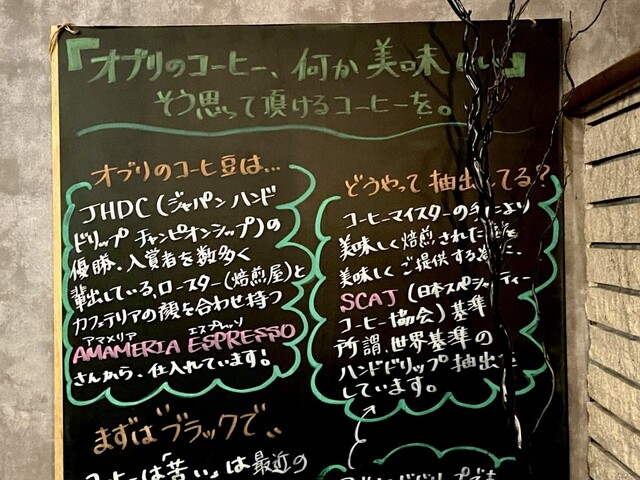 『オブリのコーヒー、何か美味しい』
そう思って頂けるコーヒーを。
オブリのコーヒー豆は…
JHDC(ジャパンハンド
ドリップ チャンピオンシップ)の
優勝、入賞者を数多く
輩出している、ロースター(焙煎屋)と
カフェテリアの顔を合わせ持つ
アマメリア エスプレッソ
AMAMERIA ESPRESSO
さんから、仕入れています!
まずは"ブラックで"
コーヒーは「苦い」は最近の
どうやって抽出してる?
コーヒーマイスターの手により
美味しく焙煎された
美味しくご提供する為に、
SCAJ(日本スペシャルティー
コーヒー協会)基準
所謂、世界基準の
ハンドドリップ抽出を
しています。